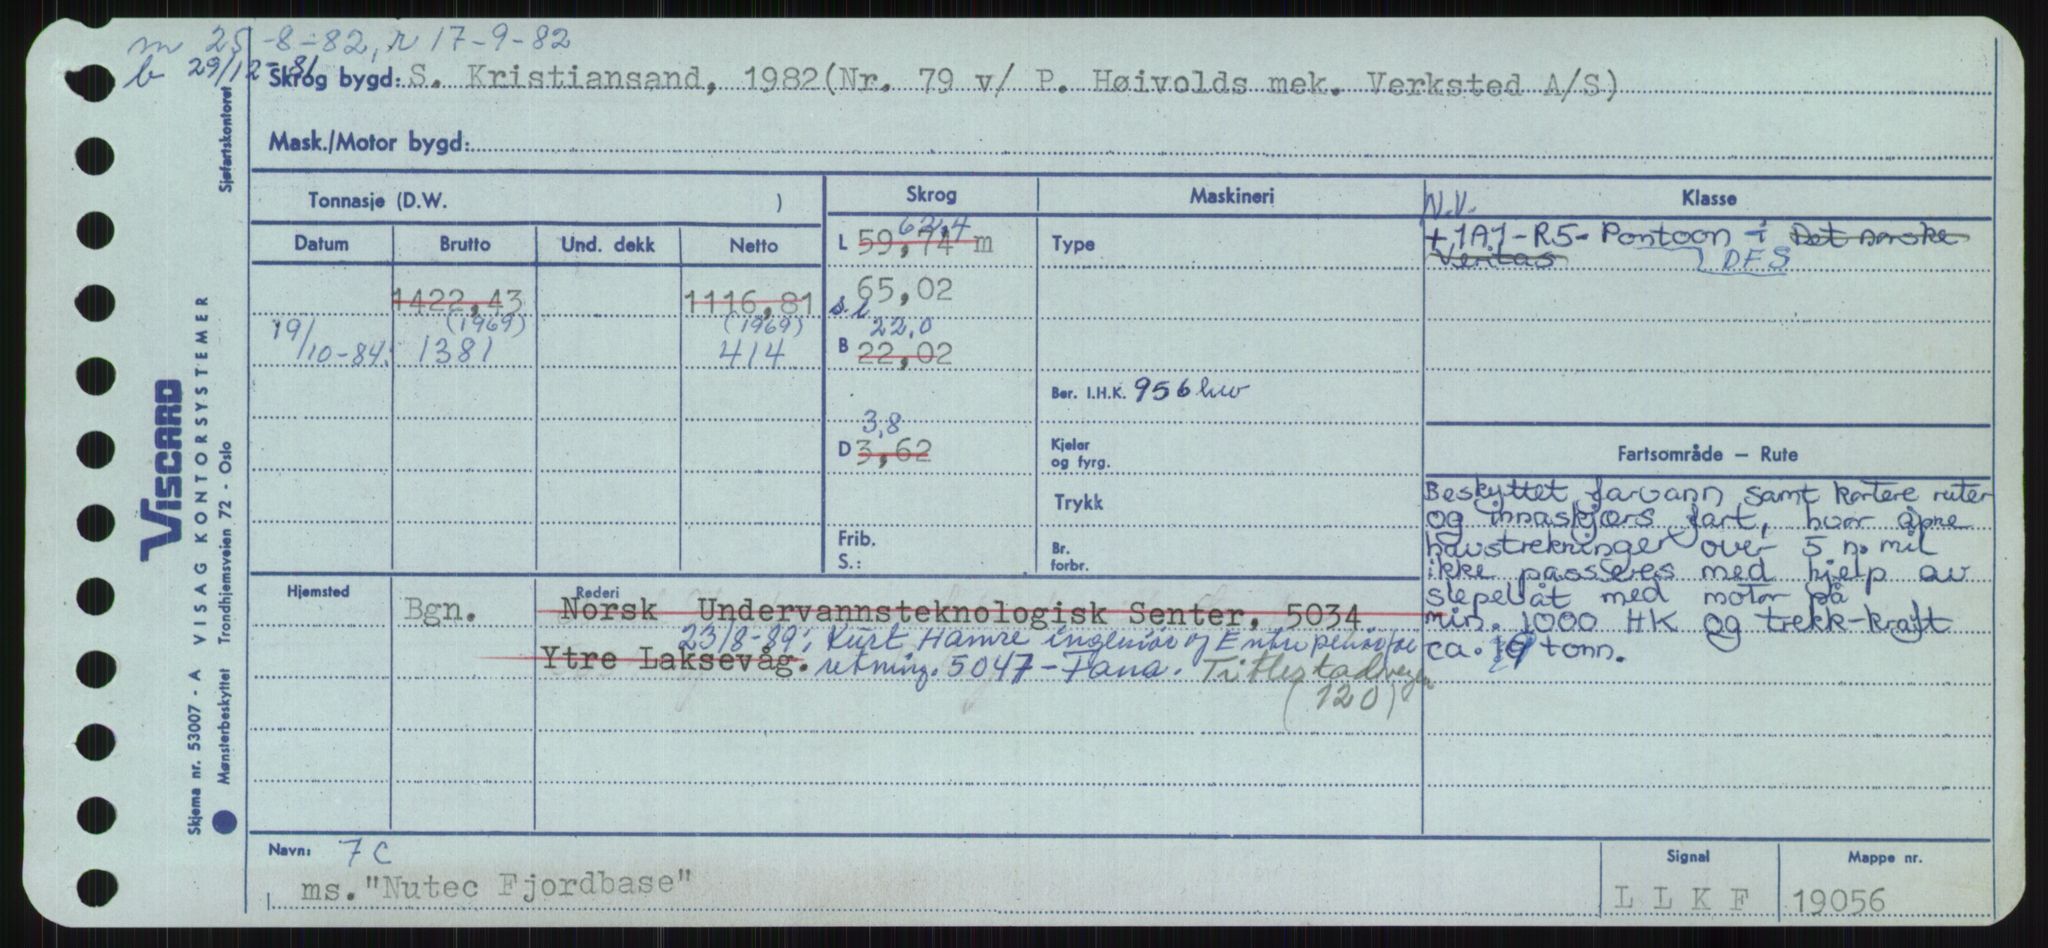 m 25-8-82, r 17-9-82
b 29/12-81
Skrog bygd: S. Kristiansand, 1982(Nr. 79 v/ P. Høivolds mek. Verksted A/S)
Mask./Motor bygd:
Tonnasje (D.W. )
Skrog
Maskineri
N.V.
Klasse
Datum
Brutto
Und. dekk
Netto
62,4
L 59,74 m
Type
+1A1-R5-Pontoon i Det norske
Veritas
DFS
1422,43
1116,81
65,02
s.l.
(1969)
(1969)
22,0
19/10-84.
1381
414
B 22,02
Ber. I.H.K. 956 kw
3,8
D 3,62
Kjeler
og fyrg.
Trykk
Frib.
S.:
Br.
forbr.
Fartsområde – Rute
Beskyttet farvann samt kortere ruter
og innaskjærs fart, hvor åpne
havstrekninger over 5 n. mil
ikke passeres med hjelp av
slepebåt med motor på
min. 1000 HK og trekk-kraft
ca. 19 tonn.
Hjemsted
Bgn.
Rederi
Norsk Undervannsteknologisk Senter, 5034
23/8-89; Kurt Hamre ingeniør og Entreprenørfor
Ytre Laksevåg. retning. 5047-Fana. Titlestadvegen
(120)
Navn: 7C
ms. "Nutec Fjordbase"
Signal
LLKF
Mappe nr.
19056
Sjøfartskontoret
VISCARD
Skjema nr. 53007 - A VISAG KONTORSYSTEMER
Mønsterbeskyttet Trondhjemsveien 72 - Oslo